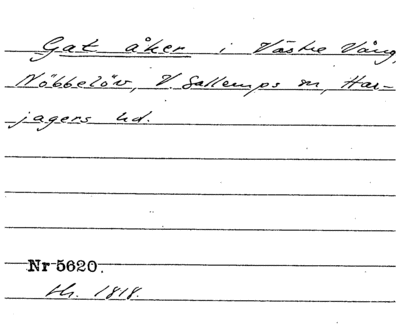 Gat åker i Västre Vång,
Nöbbelöv, V. Sallerups sn, Har-
jagers hd.
Nr 5620.
1818.